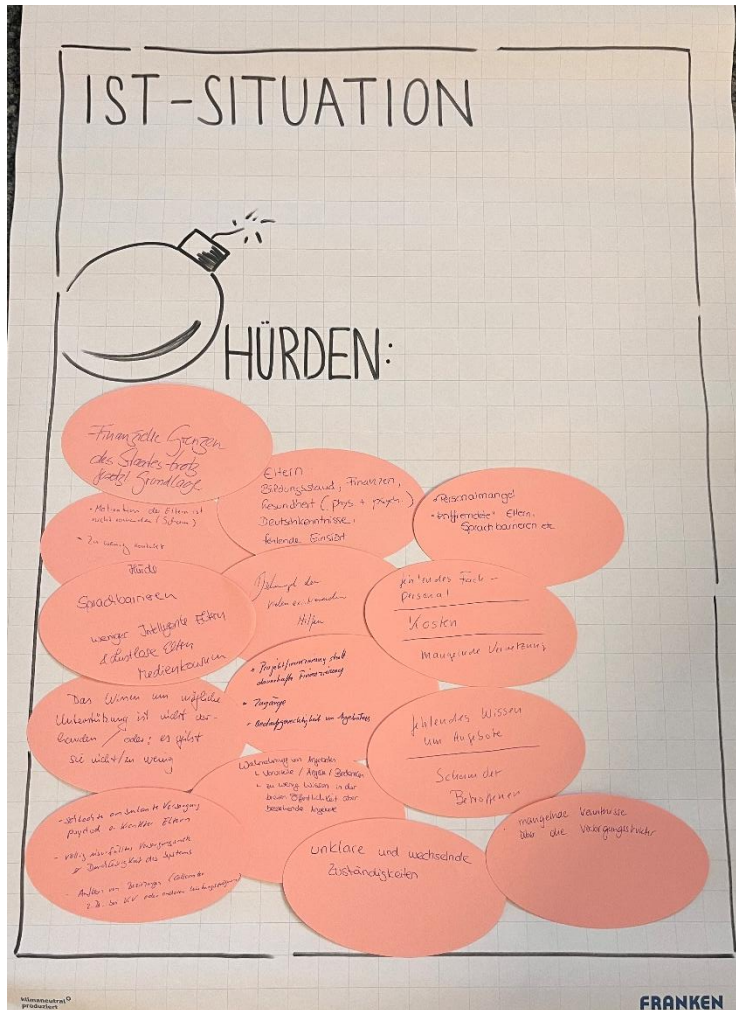 IST-SITUATION
HÜRDEN:
-Finanzielle Grenzen
des Staates trotz
gesetzl Grundlage
Eltern
Bildungsstand, Finanzen,
Gesundheit (phys + psych.)
Deutschkenntnisse,
fehlende Einsicht
• Personalmangel
Eltern.
Sprachbarrieren etc
• Motivation der Eltern ist
nicht vorhanden (Scham)
• Zu wenig
Hürde
Sprachbarrieren
weniger Intelligente Eltern
& Lustlose Eltern
Medienkonsum
Dschungel der
vielen
Hilfen
fehlendes Fach-
personal
Kosten
Mangelnde Vernetzung
• Projektfinanzierung statt
dauerhafte Finanzierung
• Zugänge
• Bedarfsgerechtigkeit von Angeboten
Das Wissen um mögliche
Unterstützung ist nicht vor-
handen / oder: es gibt
sie nicht / zu wenig
fehlendes Wissen
um Angebote
Scham der
Betroffenen
Wahrnehmung von Angeboten
Vorurteile / Ängste / Bedenken
zu wenig Wissen in der
breiten Öffentlichkeit über
bestehende Angebote
- schlechte ambulante Versorgung
psychisch erkrankter Eltern
- völlig
Durchlässigkeit des Systems
-
z.B. bei KV oder anderen
unklare und wechselnde
Zuständigkeiten
mangelnde Kenntnisse
über die Versorgungsstruktur
klimaneutral
produziert
FRANKEN